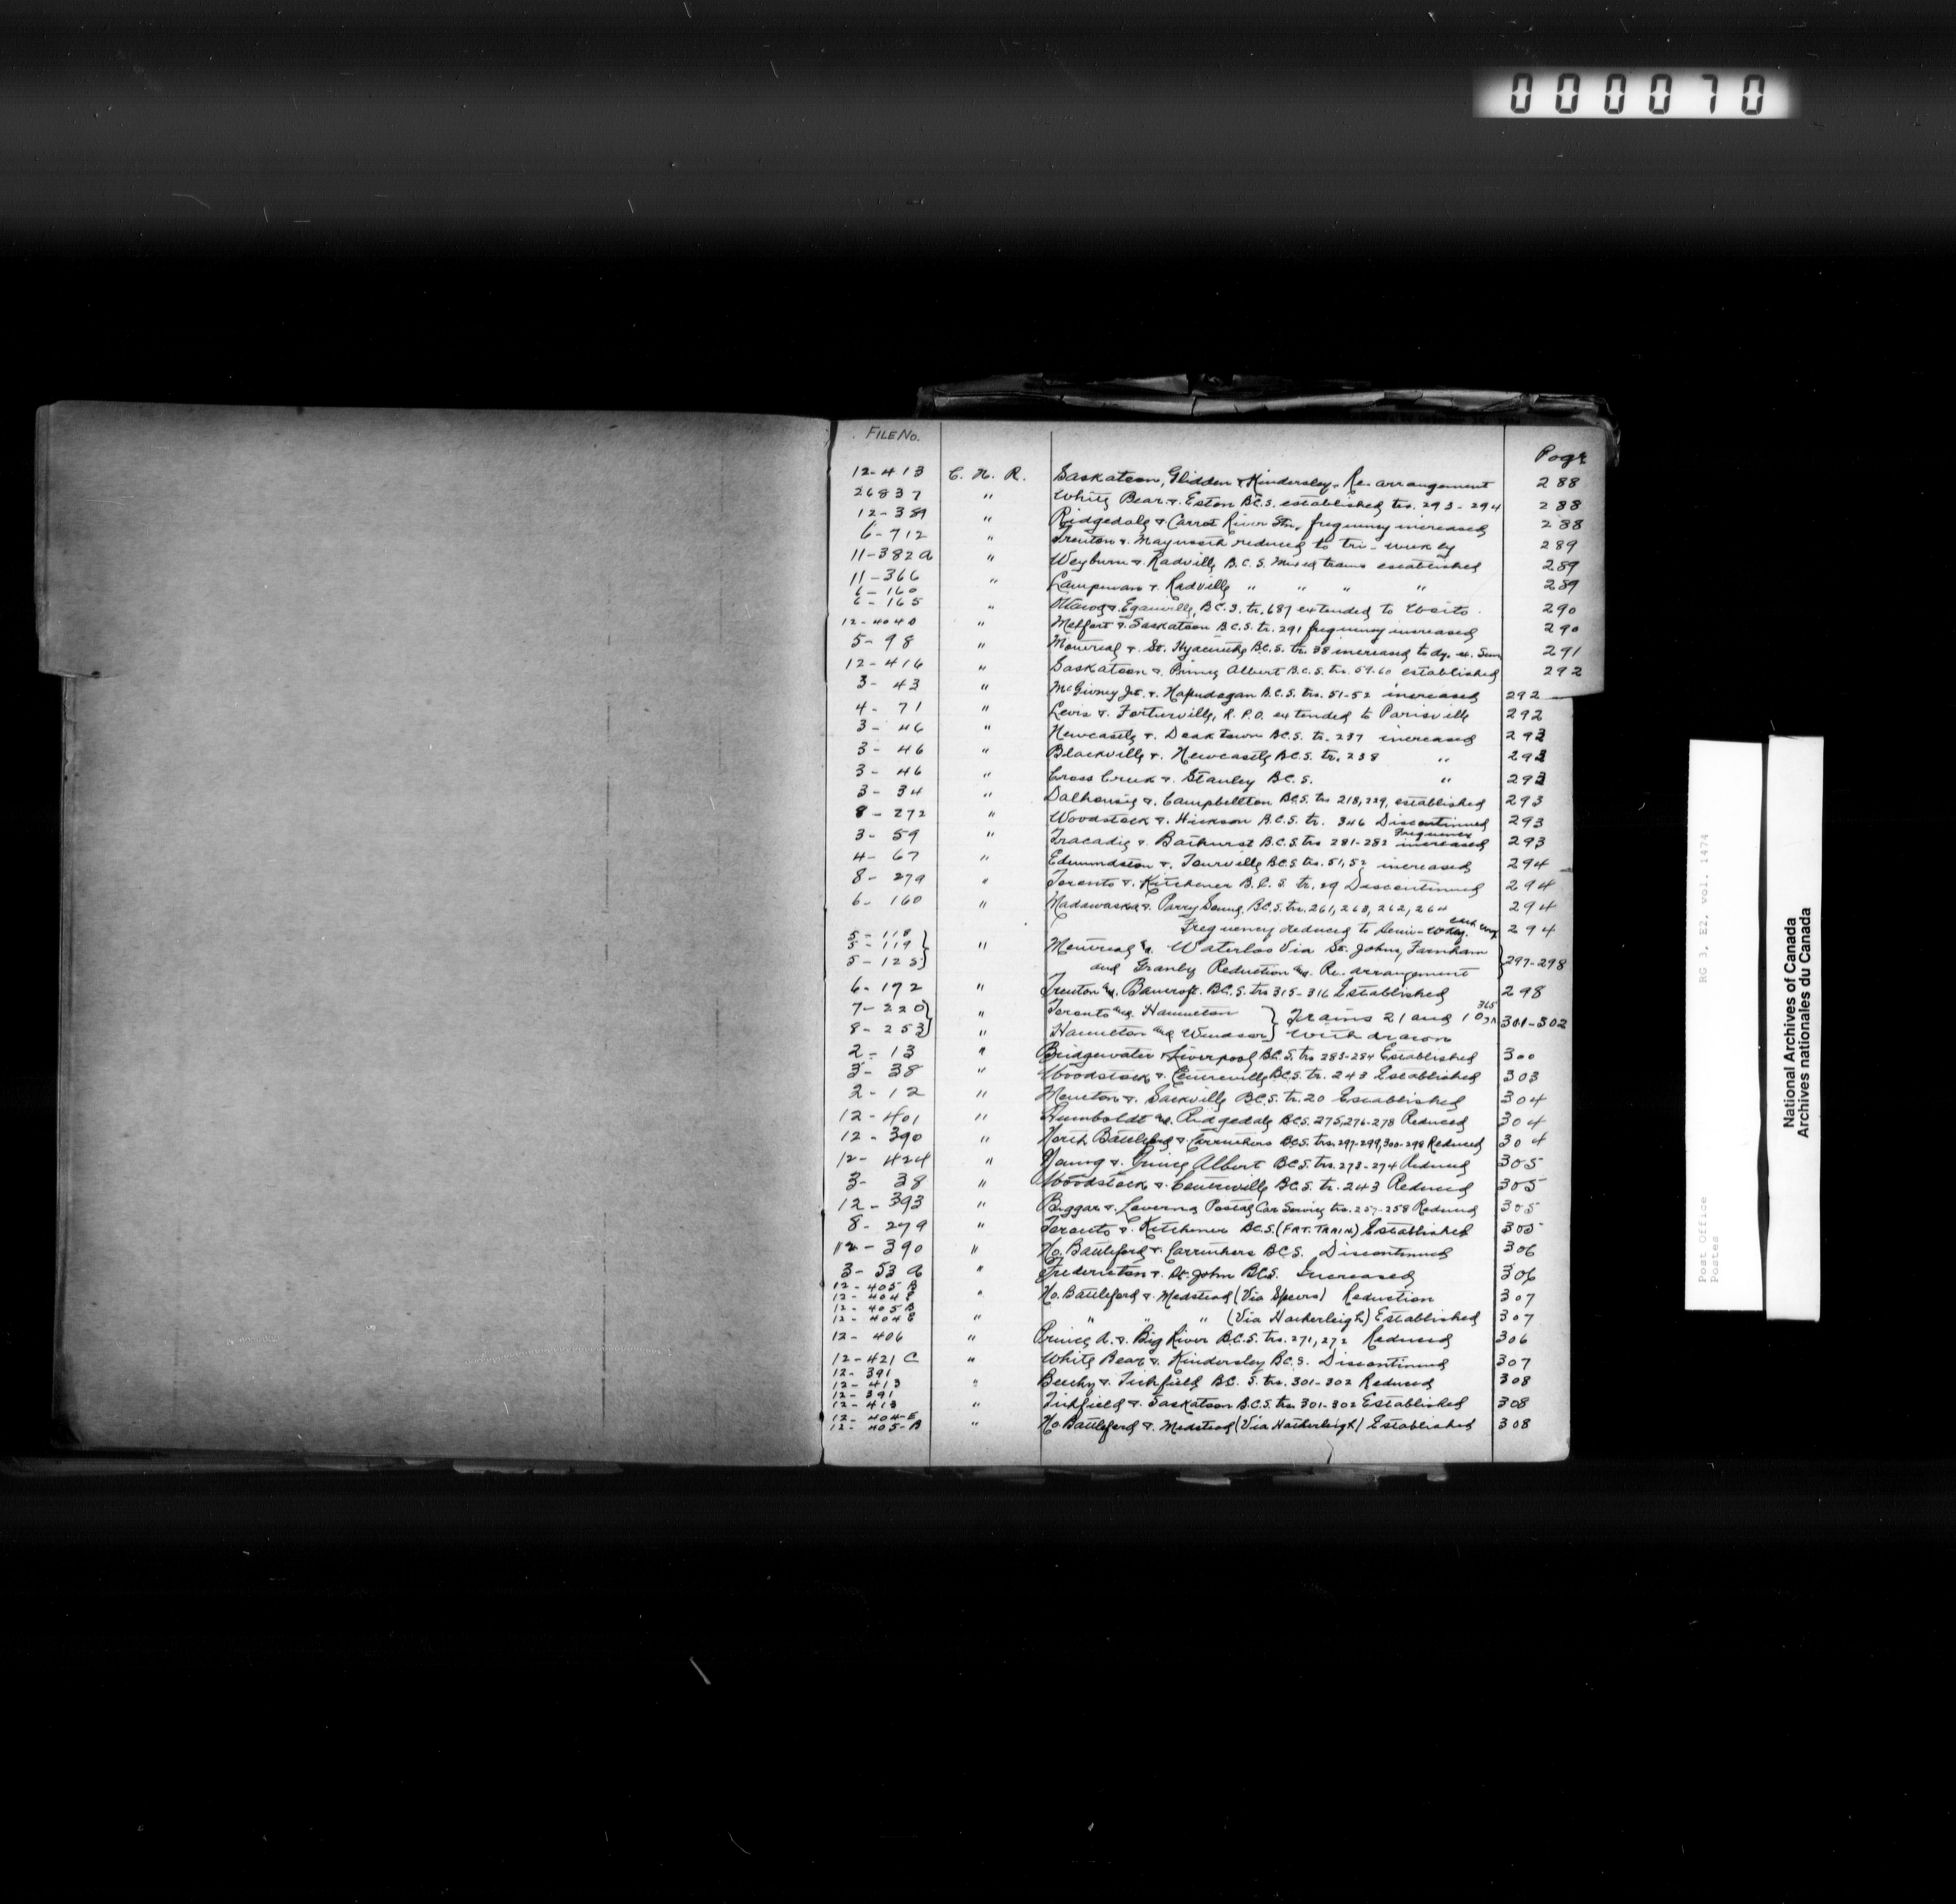 000070
FILE No.
Page
12-413 C. N. R. Saskatoon, Glidden & Kindersley. Re-arrangement 288
26837 " White Bear & Eston B.C.S. established trs. 293-294 288
12-389 " Ridgedale & Carrot River Stn. frequency increased 288
6-712 " Trenton & Maynooth reduced to tri-weekly 289
11-382a " Weyburn & Radville B.C.S. Mixed trains established 289
11-366 " Lampman & Radville " " " " 289
6-160
6-165 " Ottawa & Eganville, B.C.S. tr. 687 extended to 290
12-404D " Melfort & Saskatoon B.C.S. tr. 291 frequency increased 290
5-98 " Montreal & St. Hyacinthe B.C.S. tr. 38 increased to dy. ex. Sun 291
12-416 " Saskatoon & Prince Albert B.C.S. trs. 59-60 established 292
3-43 " McGivney Jct. & Napudogan B.C.S. trs. 51-52 increased 292
4-71 " Levis & Fortierville, R.P.O. extended to Parisville 292
3-46 " Newcastle & Doaktown B.C.S. tr. 237 increased 293
3-46 " Blackville & Newcastle B.C.S. tr. 238 " 293
3-46 " Cross Creek & Stanley B.C.S. " 293
3-34 " Dalhousie & Campbellton B.C.S. trs 218, 229, established 293
8-272 " Woodstock & Hickson B.C.S. tr. 346 Discontinued 293
3-59 " Tracadie & Bathurst B.C.S. trs 281-282 frequency increased 293
4-67 " Edmundston & Tourville B.C.S. trs. 51,52 increased 294
8-279 " Toronto & Kitchener B.C.S. tr. 29 Discontinued 294
6-160 " Madawaska & Parry Sound. B.C.S. trs. 261, 263, 262, 264 294
Frequency reduced to Semi-wkly. each way 294
5-118
5-119 " Montreal & Waterloo Via St. Johns, Farnham
5-125 and Granby Reduction and Re-arrangement 297-298
6-172 " Trenton and Bancroft. B.C.S. trs 315-316 Established 298
7-220 " Toronto and Hamilton } Trains 21 and 10 365 301-302
8-253 " Hamilton and Windsor } Withdrawn
2-13 " Bridgewater & Liverpool B.C.S. trs 283-284 Established 300
3-38 " Woodstock & Centreville B.C.S. tr. 243 Established 303
2-12 " Moncton & Sackville B.C.S. tr. 20 Established 304
12-401 " Humboldt and Ridgedale B.C.S. 275,276-278 Reduced 304
12-390 " North Battleford & Carruthers B.C.S. trs. 297-299,300-298 Reduced 304
12-424 " Young & Prince Albert B.C.S. trs. 273-274 Reduced 305
3-38 " Woodstock & Centreville B.C.S. tr. 243 Reduced 305
12-393 " Biggar & Loverna Postal Car Service trs. 257-258 Reduced 305
8-279 " Toronto & Kitchener B.C.S. (FRT. TRAIN) Established 305
12-390 " No. Battleford & Carruthers B.C.S. Discontinued 306
3-53a " Fredericton & St. John B.C.S. Increased 306
12-405B
12-404E " No. Battleford & Medstead (Via Speers) Reduction 307
12-405B
12-404E " " " " (Via Hatherleigh) Established 307
12-406 " Prince A. & Big River B.C.S. trs. 271,272 Reduced 306
12-421C " White Bear & Kindersley B.C.S. Discontinued 307
12-391
12-413 " Beechy & Tichfield B.C.S. trs. 301-302 Reduced 308
12-391
12-413 " Tichfield & Saskatoon B.C.S. trs. 301-302 Established 308
12-404-E
12-405-B " No. Battleford & Medstead (Via Hatherleigh) Established 308
Post Office RG 3, E2, vol. 1474
Postes
National Archives of Canada
Archives nationales du Canada